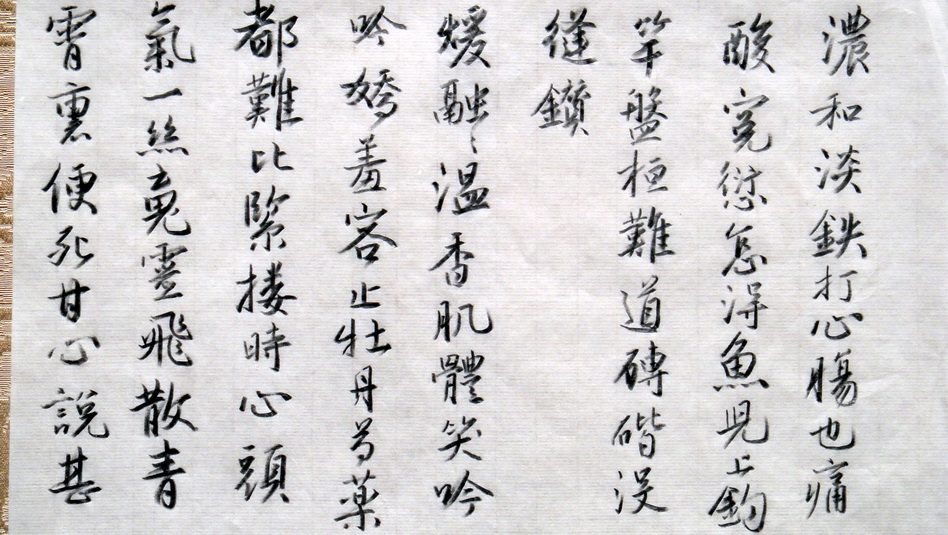 濃和淡鉄打心腸也痛
酸冤愆怎得魚児上鈎
竿盤桓難道磚碏没
縫鑽
煖融〻温香肌體笑吟
吟嬌羞客止牡丹芍薬
都難比緊摟時心頭
氣一絲䰟靈飛散青
霄裏便死甘心說甚